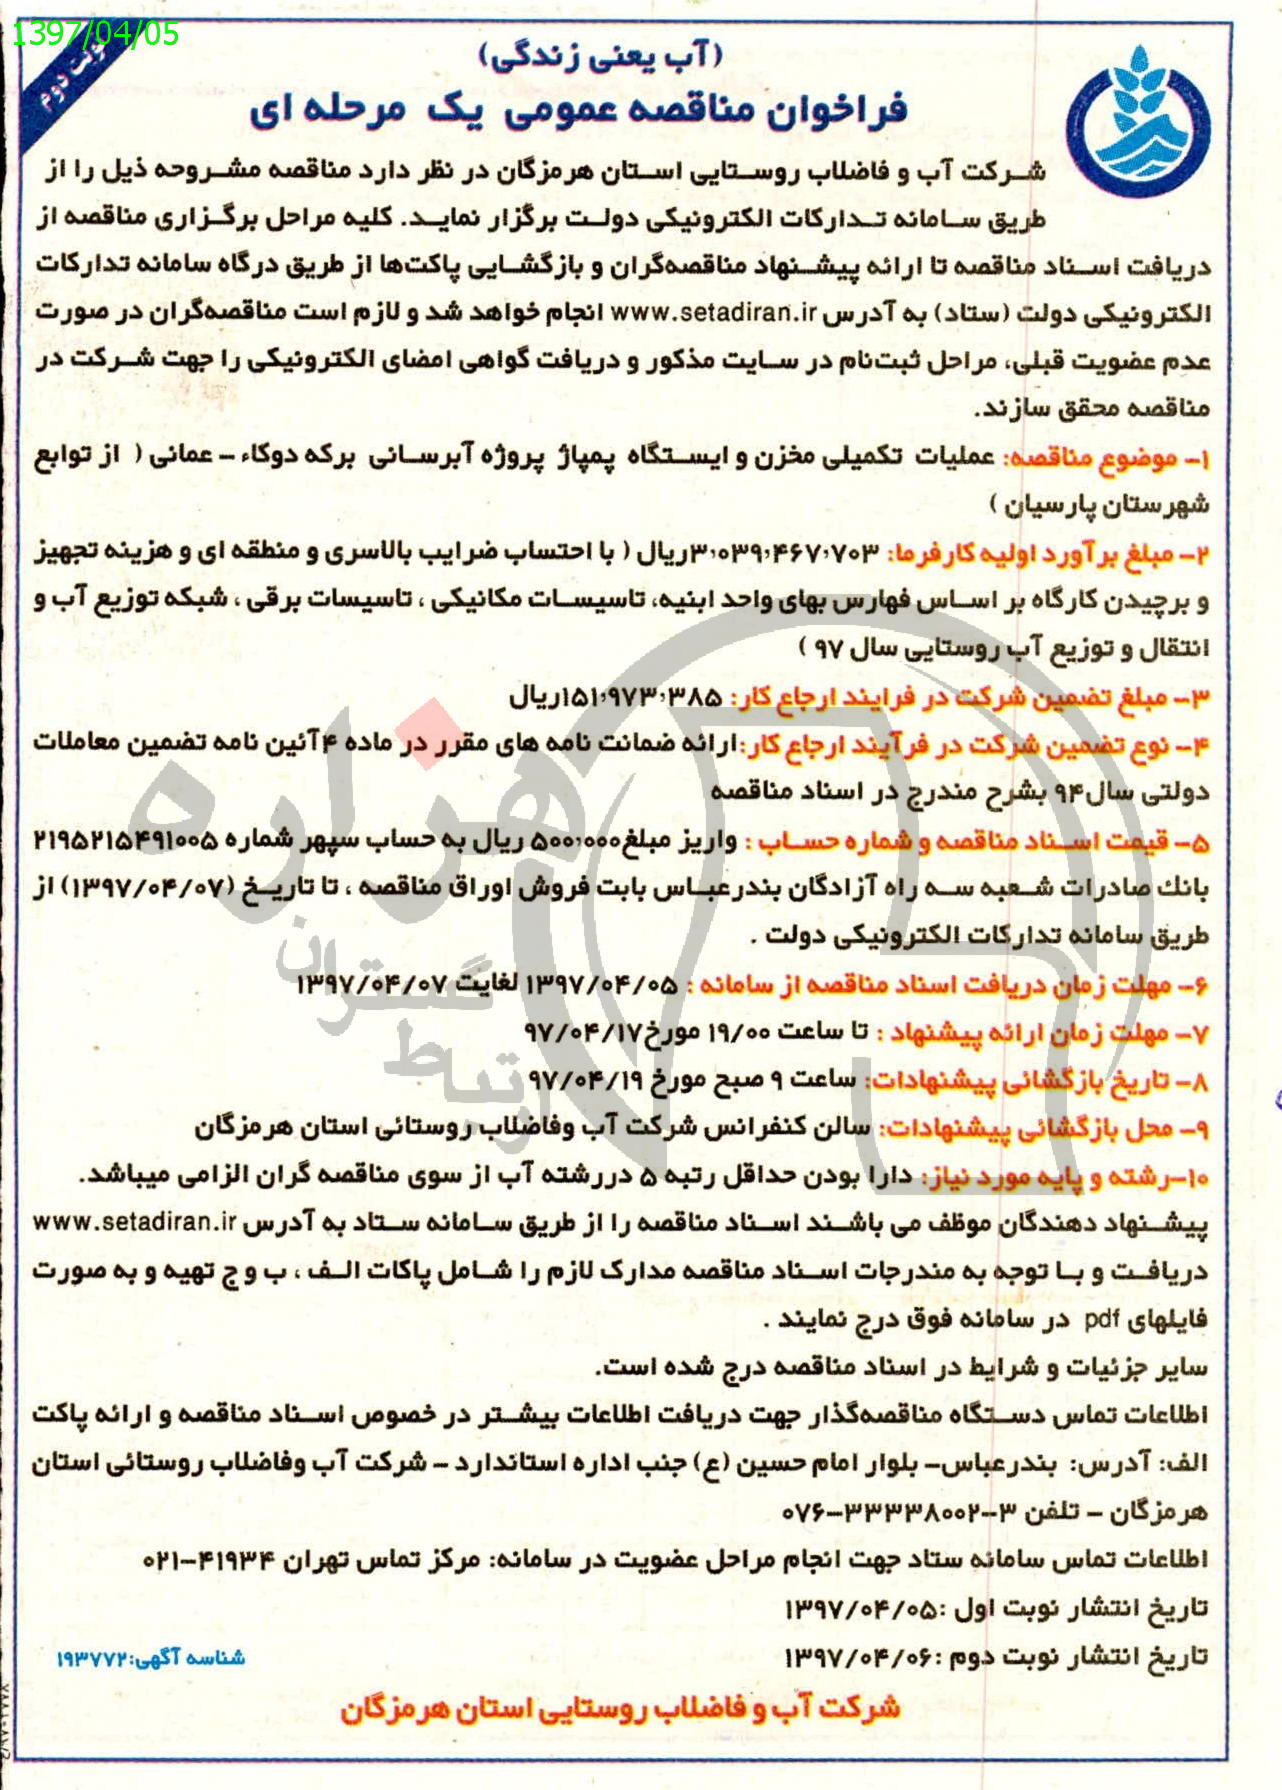 1397/04/05
نوبت دوم
(آب یعنی زندگی)
فراخوان مناقصه عمومی یک مرحله ای
شرکت آب و فاضلاب روستایی استان هرمزگان در نظر دارد مناقصه مشروحه ذیل را از
طریق سامانه تدارکات الکترونیکی دولت برگزار نماید. کلیه مراحل برگزاری مناقصه از
دریافت اسناد مناقصه تا ارائه پیشنهاد مناقصه‌گران و بازگشایی پاکت‌ها از طریق درگاه سامانه تدارکات
الکترونیکی دولت (ستاد) به آدرس www.setadiran.ir انجام خواهد شد و لازم است مناقصه‌گران در صورت
عدم عضویت قبلی، مراحل ثبت‌نام در سایت مذکور و دریافت گواهی امضای الکترونیکی را جهت شرکت در
مناقصه محقق سازند.
۱- موضوع مناقصه: عملیات تکمیلی مخزن و ایستگاه پمپاژ پروژه آبرسانی برکه دوکاء - عمانی ( از توابع
شهرستان پارسیان )
۲- مبلغ برآورد اولیه کارفرما: ۳،۰۳۹،۴۶۷،۷۰۳ریال ( با احتساب ضرایب بالاسری و منطقه ای و هزینه تجهیز
و برچیدن کارگاه بر اساس فهارس بهای واحد ابنیه، تاسیسات مکانیکی ، تاسیسات برقی ، شبکه توزیع آب و
انتقال و توزیع آب روستایی سال ۹۷ )
۳- مبلغ تضمین شرکت در فرایند ارجاع کار: ۱۵۱،۹۷۳،۳۸۵ریال
۴- نوع تضمین شرکت در فرآیند ارجاع کار:ارائه ضمانت نامه های مقرر در ماده ۴آئین نامه تضمین معاملات
دولتی سال۹۴ بشرح مندرج در اسناد مناقصه
۵- قیمت اسناد مناقصه و شماره حساب : واریز مبلغ۵۰۰،۰۰۰ ریال به حساب سپهر شماره ۲۱۹۵۲۱۵۴۹۱۰۰۵
بانك صادرات شعبه سه راه آزادگان بندرعباس بابت فروش اوراق مناقصه ، تا تاریخ (۱۳۹۷/۰۴/۰۷) از
طریق سامانه تدارکات الکترونیکی دولت .
۶- مهلت زمان دریافت اسناد مناقصه از سامانه : ۱۳۹۷/۰۴/۰۵ لغایت ۱۳۹۷/۰۴/۰۷
۷- مهلت زمان ارائه پیشنهاد : تا ساعت ۱۹/۰۰ مورخ۹۷/۰۴/۱۷
۸- تاریخ بازگشائی پیشنهادات: ساعت ۹ صبح مورخ ۹۷/۰۴/۱۹
۹- محل بازگشائی پیشنهادات: سالن کنفرانس شرکت آب وفاضلاب روستائی استان هرمزگان
۱۰-رشته و پایه مورد نیاز: دارا بودن حداقل رتبه ۵ دررشته آب از سوی مناقصه گران الزامی میباشد.
پیشنهاد دهندگان موظف می باشند اسناد مناقصه را از طریق سامانه ستاد به آدرس www.setadiran.ir
دریافت و با توجه به مندرجات اسناد مناقصه مدارک لازم را شامل پاکات الف ، ب و ج تهیه و به صورت
فایلهای pdf در سامانه فوق درج نمایند .
سایر جزئیات و شرایط در اسناد مناقصه درج شده است.
اطلاعات تماس دستگاه مناقصه‌گذار جهت دریافت اطلاعات بیشتر در خصوص اسناد مناقصه و ارائه پاکت
الف: آدرس: بندرعباس- بلوار امام حسین (ع) جنب اداره استاندارد - شرکت آب وفاضلاب روستائی استان
هرمزگان - تلفن ۳-۳۳۳۳۸۰۰۲-۰۷۶
اطلاعات تماس سامانه ستاد جهت انجام مراحل عضویت در سامانه: مرکز تماس تهران ۴۱۹۳۴-۰۲۱
تاریخ انتشار نوبت اول :۱۳۹۷/۰۴/۰۵
تاریخ انتشار نوبت دوم :۱۳۹۷/۰۴/۰۶
شناسه آگهی:۱۹۳۷۷۲
شرکت آب و فاضلاب روستایی استان هرمزگان
هزاره
گستران
ارتباط